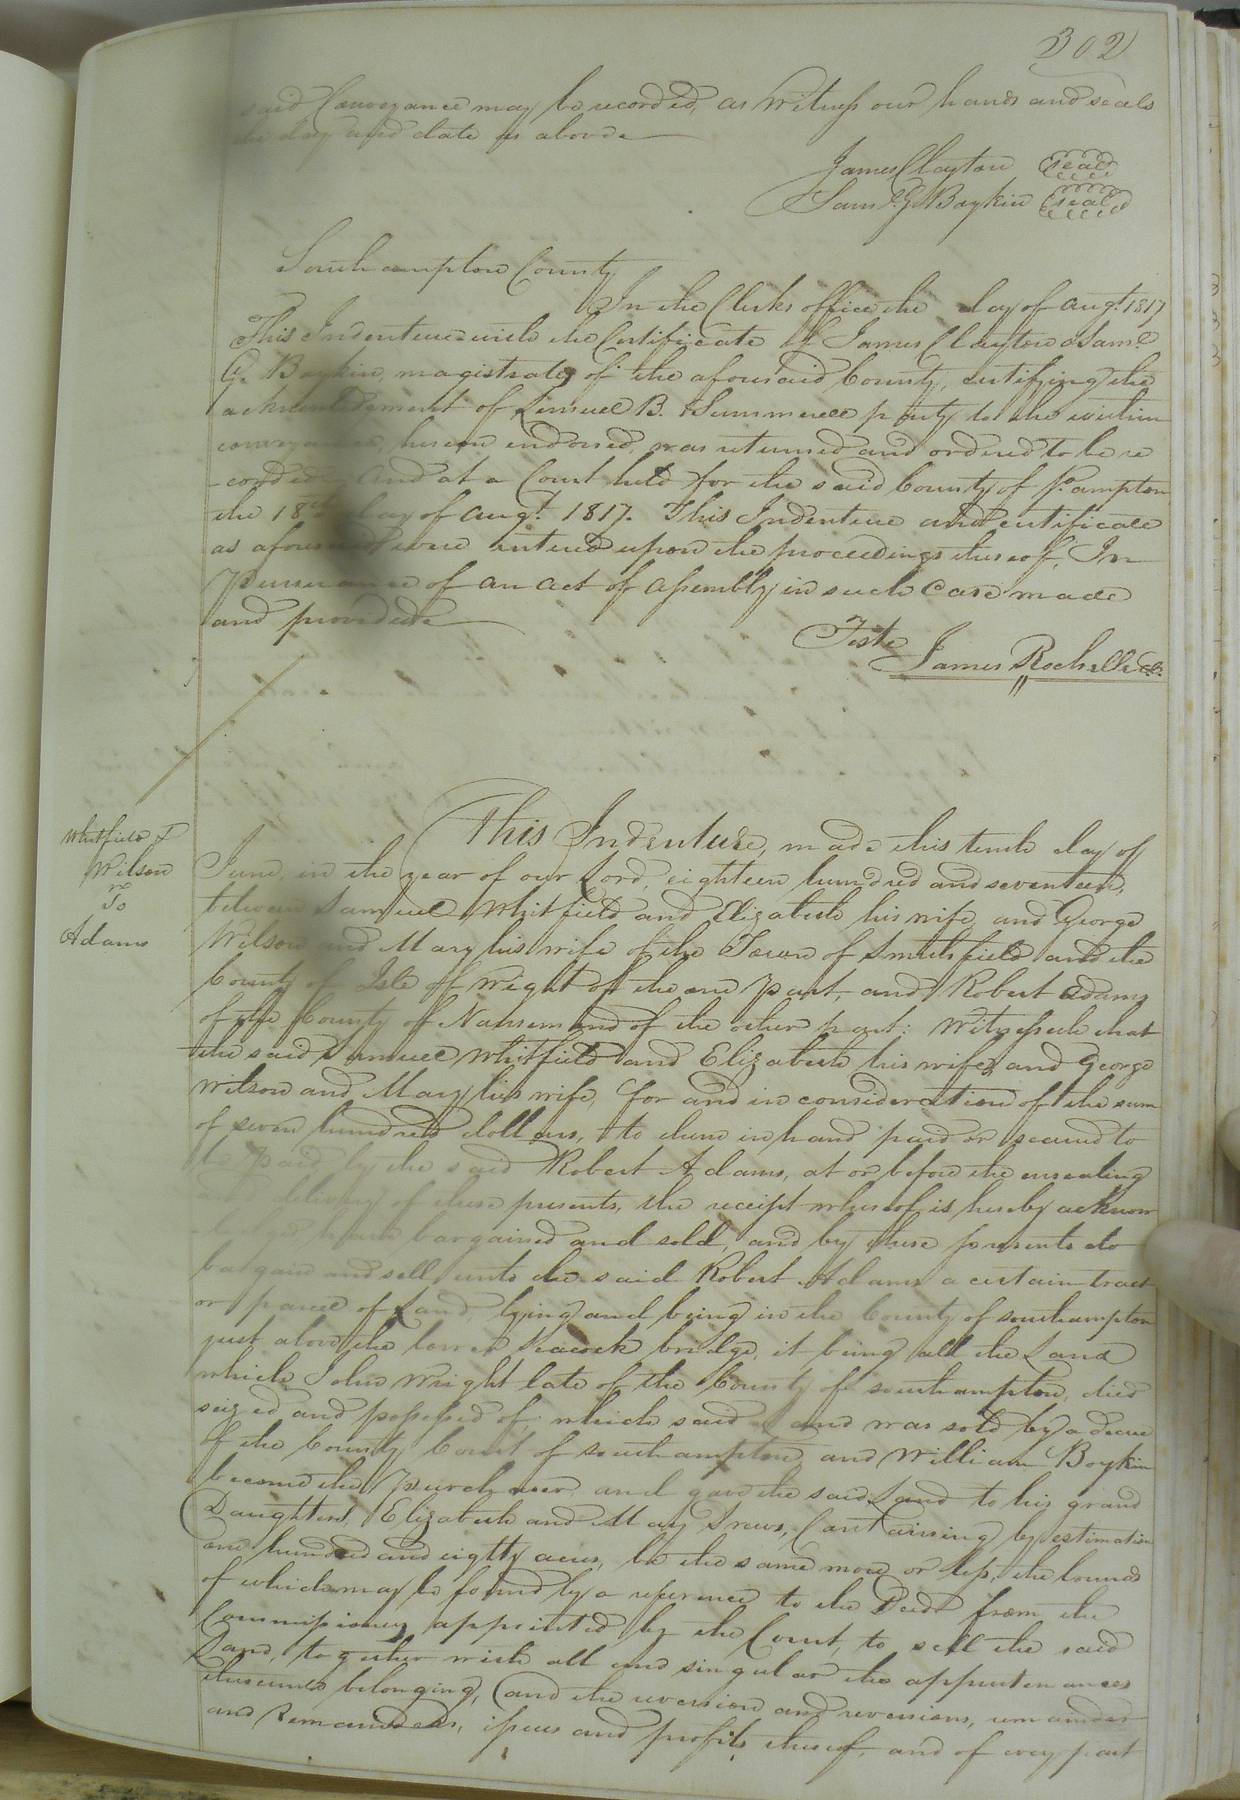 302
said Conveyance may be recorded, as Witness our hands and seals
the day and date as above
James Clayton seal
Saml. G. Boykin seal
Southampton County
In the Clerks office the day of Augt. 1817
This Indenture with the Certificate of James Clayton & Saml.
G. Boykin, magistrates of the aforesaid County, certifying the
acknowledgment of Lemuel B. Summerell party to the within
conveyance, hereon endorsed, was returned and ordered to be re
-corded. And at a Court held for the said County of So.ampton
the 18th day of Augt. 1817. This Indenture and certificate
as aforesaid were entered upon the proceedings thereof, In
Pursuance of an act of Assembly in such Case made
and provided
Teste
James Rochelle Cl.
Whitfield &
Wilson
To
Adams
This Indenture, made this tenth day of
June, in the year of our Lord, eighteen hundred and seventeen,
between Samuel Whitfield and Elizabeth his wife, and George
Wilson and Mary his wife of the Town of Smithfield and the
County of Isle of Wight of the one part, and Robert Adams
of the County of Nansemond of the other part: Witnesseth that
the said Samuel Whitfield and Elizabeth his wife, and George
Wilson and Mary his wife, for and in consideration of the sum
of seven hundred dollars, to them in hand paid or secured to
be paid, by the said Robert Adams, at or before the ensealing
and delivery of these presents, the receipt whereof is hereby acknow
have bargained and sold, and by these presents do
bargain and sell, unto the said Robert Adams a certain tract
or parcel of Land, lying and being in the County of southampton
just above the lower Seacock bridge, it being all the Land
which John Wright late of the County of southampton, died
seized and possessed of, which said Land was sold by a decree
of the County Court of southampton and William Boykin
became the Purchaser and gave the said Land to his grand
Daughters, Elizabeth and Mary Drews, Containing by estimation
one hundred and eighty acres, be the same more or less, the bounds
of which may be found by a reference to the Deed from the
Commissioners appointed by the Court, to sell the said
Land, together with all and singular the appurtenances
thereunto belonging, (and the reversion and reversions, remainder
and Remainders, issues and profits thereof, and of every part